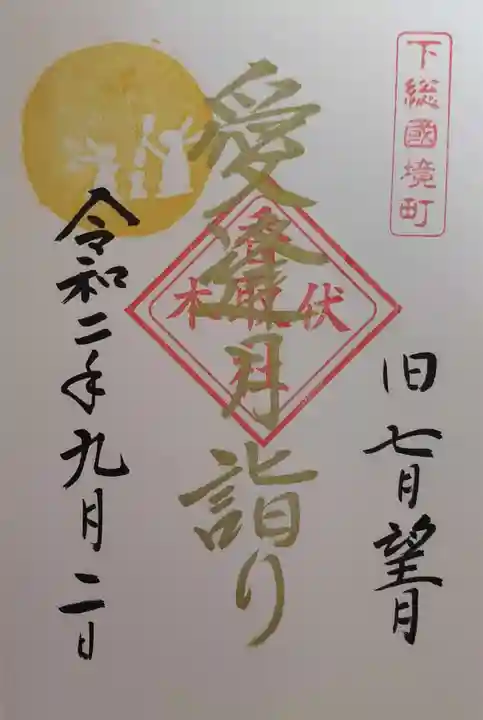 下総國境町
旧七月望月
愛逢月詣り
伏木
香取社
令和二年九月二日